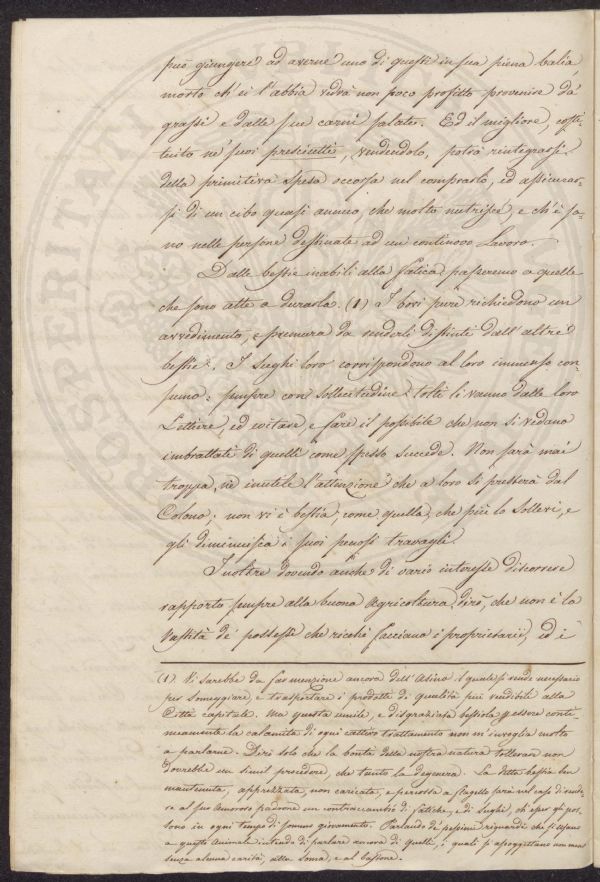 può giungere ad averne uno di questi in sua piena balìa,
morto ch'ei l'abbia vedrà non poco profitto provenire da'
grassi e dalle sue carni salate. Ed il migliore, costi-
tuito ne' suoi presciutti, vendendolo, potrà reintegrarsi
della primitiva spesa occorsa nel comprarlo, ed assicurar-
si di un cibo quasi annuo, che molto nutrisce, e ch'è sa-
no nelle persone destinate ad un continovo Lavoro.
Dalle bestie inabili alla fatica passeremo a quelle
che sono atte a durarla. (1) I bovi pure richiedono un
avvedimento, e premura da renderli distinti dall'altre
bestie. I sughi loro corrispondono al loro immenso con-
sumo: sempre con sollecitudine tolti li vanno dalle loro
Lettiere, ed evitare, e fare il possibile che non si vedano
imbrattate di quelli come spesso succede. Non sarà mai
troppa, nè inutile l'attenzione che a loro si presterà dal
Colono; non vi è bestia, come quella, che più lo sollevi, e
gli diminuisca i suoi penosi travagli.
Inoltre dovendo anche di vario interesse discorrere
rapporto sempre alla buona Agricoltura, dirò, che non è la
Vastità de' possessi che ricchi facciano i proprietarii, ed i
(1) Vi sarebbe da far menzione ancora dell'Asino il quale si rende necessario
per someggiare, e trasportare i prodotti di qualità più vendibile alla
Città capitale. Ma questa umile, e disgraziata bestiola p essere conti-
nuamente la calamita di ogni cattivo trattamento non m'invoglia molto
a parlarne. Dirò solo che la bontà della nostra natura tollerare non
dovrebbe un simil procedere, che tanto la degenera. La detta bestia ben
mantenuta, apprezzata, non caricata, e percossa a flagello sarà nel caso di rende-
re al suo Amoroso padrone un contraccambio di fatiche, e di sughi, ch'esser gli pos-
sono in ogni tempo di sommo giovamento. Parlando de' pessimi riguardi che si usano
a questo Animale intendo di parlare ancora di quelli, i quali si assoggettano non men
senza alcuna carità, alla soma, e al bastone.